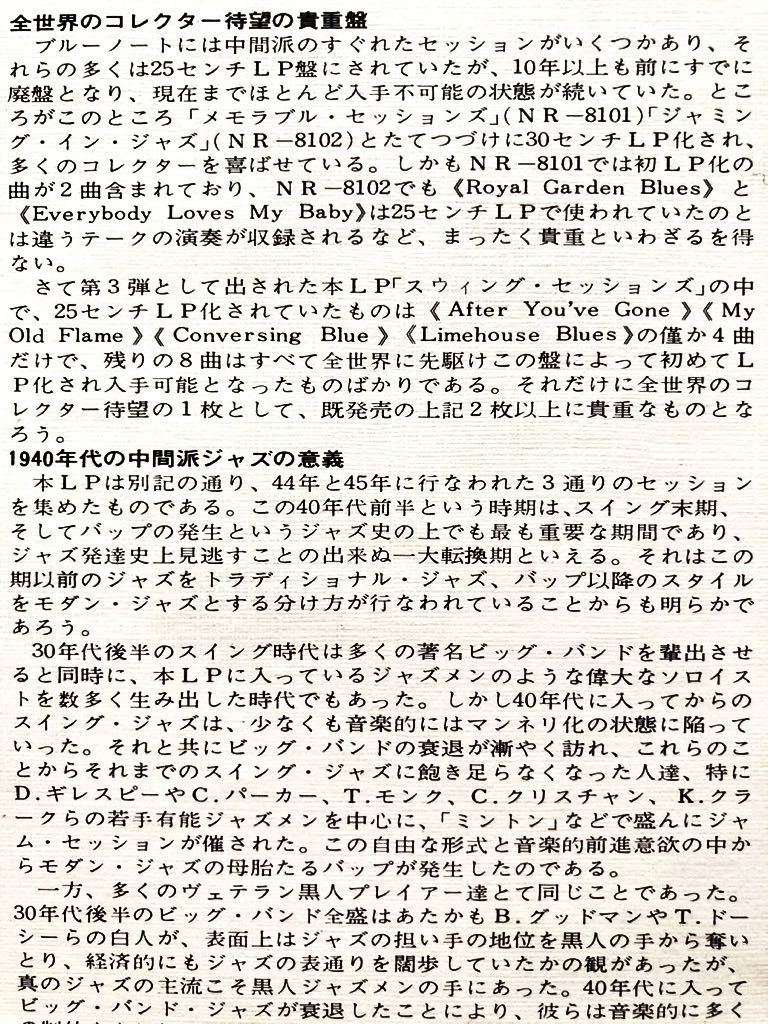 全世界のコレクター待望の貴重盤
ブルーノートには中間派のすぐれたセッションがいくつかあり、そ
れらの多くは25センチＬＰ盤にされていたが、10年以上も前にすでに
廃盤となり、現在までほとんど入手不可能の状態が続いていた。とこ
ろがこのところ「メモラブル・セッションズ」(ＮＲ－8101)「ジャミン
グ・イン・ジャズ」(ＮＲ－8102)とたてつづけに30センチＬＰ化され、
多くのコレクターを喜ばせている。しかもＮＲ－8101では初ＬＰ化の
曲が２曲含まれており、ＮＲ－8102でも《Royal Garden Blues》と
《Everybody Loves My Baby》は25センチＬＰで使われていたのと
は違うテークの演奏が収録されるなど、まったく貴重といわざるを得
ない。
さて第３弾として出された本ＬＰ「スウィング・セッションズ」の中
で、25センチＬＰ化されていたものは《After You've Gone》《My
Old Flame》《Conversing Blue》《Limehouse Blues》の僅か４曲
だけで、残りの８曲はすべて全世界に先駆けこの盤によって初めてＬ
Ｐ化され入手可能となったものばかりである。それだけに全世界のコ
レクター待望の１枚として、既発売の上記２枚以上に貴重なものとな
ろう。
1940年代の中間派ジャズの意義
本ＬＰは別記の通り、44年と45年に行なわれた３通りのセッション
を集めたものである。この40年代前半という時期は、スイング末期、
そしてバップの発生というジャズ史の上でも最も重要な期間であり、
ジャズ発達史上見逃すことの出来ぬ一大転換期といえる。それはこの
期以前のジャズをトラディショナル・ジャズ、バップ以降のスタイル
をモダン・ジャズとする分け方が行なわれていることからも明らかで
あろう。
30年代後半のスイング時代は多くの著名ビッグ・バンドを輩出させ
ると同時に、本ＬＰに入っているジャズメンのような偉大なソロイス
トを数多く生み出した時代でもあった。しかし40年代に入ってからの
スイング・ジャズは、少なくも音楽的にはマンネリ化の状態に陥って
いった。それと共にビッグ・バンドの衰退が漸やく訪れ、これらのこ
とからそれまでのスイング・ジャズに飽き足らなくなった人達、特に
Ｄ.ギレスピーやＣ.パーカー、Ｔ.モンク、Ｃ.クリスチャン、Ｋ.クラ
ークらの若手有能ジャズメンを中心に、「ミントン」などで盛んにジャ
ム・セッションが催された。この自由な形式と音楽的前進意欲の中か
らモダン・ジャズの母胎たるバップが発生したのである。
一方、多くのヴェテラン黒人プレイアー達とて同じことであった。
30年代後半のビッグ・バンド全盛はあたかもＢ.グッドマンやＴ.ドー
シーらの白人が、表面上はジャズの担い手の地位を黒人の手から奪い
とり、経済的にもジャズの表通りを闊歩していたかの観があったが、
真のジャズの主流こそ黒人ジャズメンの手にあった。40年代に入って
ビッグ・バンド・ジャズが衰退したことにより、彼らは音楽的に多く